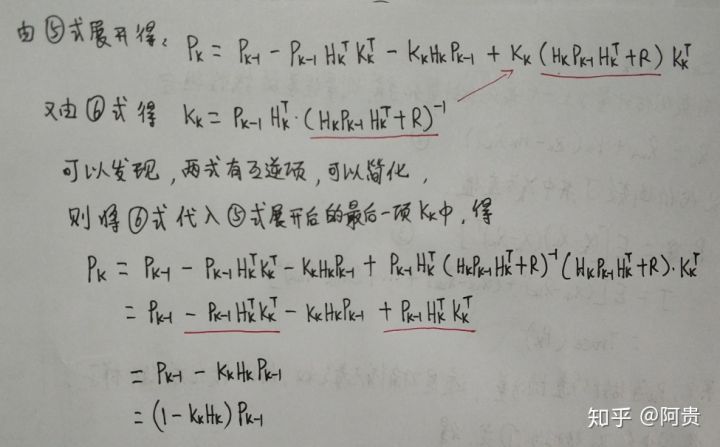 由⑤式展开得: Pₖ = Pₖ₋₁ - Pₖ₋₁HₖᵀKₖᵀ - KₖHₖPₖ₋₁ + Kₖ(HₖPₖ₋₁Hₖᵀ+R)Kₖᵀ
又由⑥式得 Kₖ = Pₖ₋₁Hₖᵀ·(HₖPₖ₋₁Hₖᵀ+R)⁻¹
可以发现,两式有互逆项,可以简化,
则将⑥式代入⑤式展开后的最后一项Kₖ中,得
Pₖ = Pₖ₋₁ - Pₖ₋₁HₖᵀKₖᵀ - KₖHₖPₖ₋₁ + Pₖ₋₁Hₖᵀ(HₖPₖ₋₁Hₖᵀ+R)⁻¹(HₖPₖ₋₁Hₖᵀ+R)·Kₖᵀ
= Pₖ₋₁ - Pₖ₋₁HₖᵀKₖᵀ - KₖHₖPₖ₋₁ + Pₖ₋₁HₖᵀKₖᵀ
= Pₖ₋₁ - KₖHₖPₖ₋₁
= (1-KₖHₖ)Pₖ₋₁
知乎 @阿贵